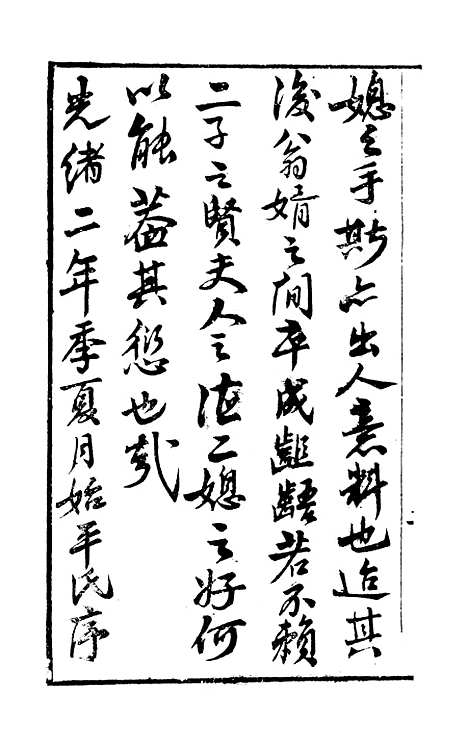 媳之手斯亦出人意料也迨其
後翁婿之間卒成齟齬若不賴
二子之賢夫人之德二媳之好何
以能蓋其愆也哉
光緒二年季夏月始平氏序